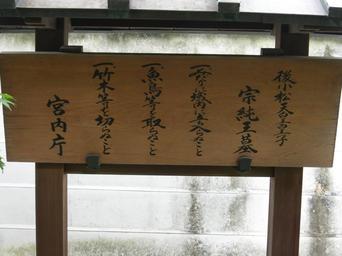 後小松天皇皇子
宗純王墓
一、みだりに域内に立入らぬこと
一、魚鳥等を取らぬこと
一、竹木等を切らぬこと
宮内庁